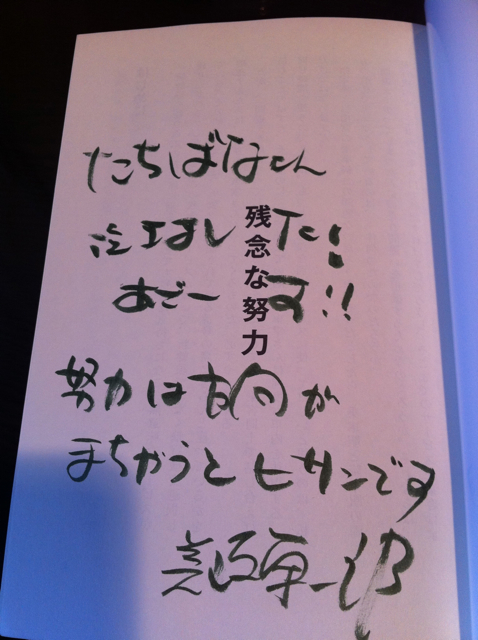 たちばなさん
した!
あざーす!!
残念な努力
努力は方向が
まちがうとヒサンです